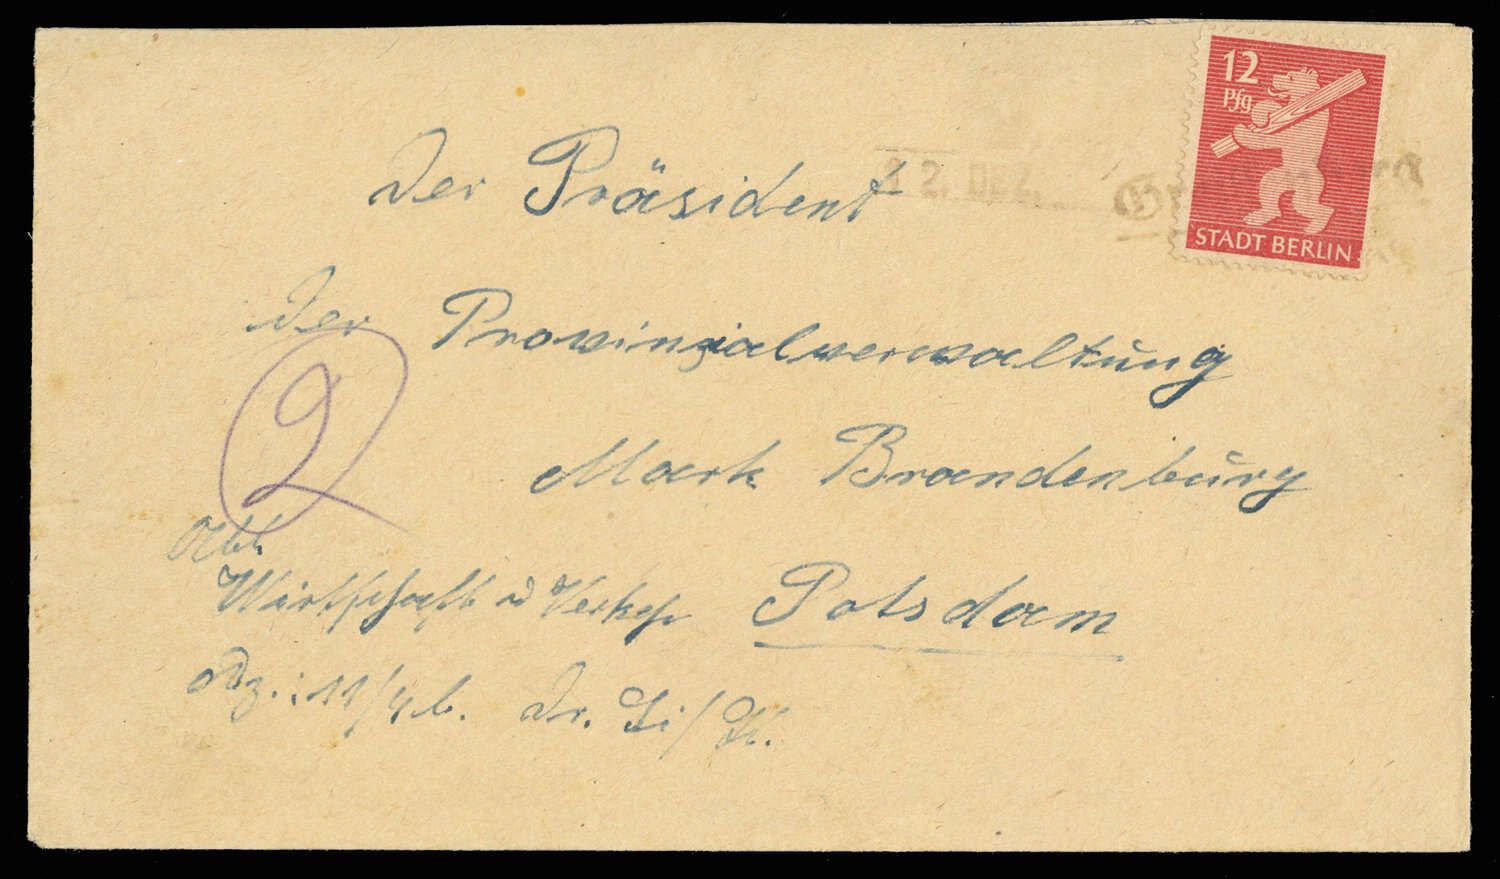 12
Pfg
STADT BERLIN
2. DEZ.
Der Präsident
der Provinzialverwaltung
Mark Brandenburg
2
Abt.
Wirtschaft u Verkehr Potsdam
11/4 b. Dr. Li/